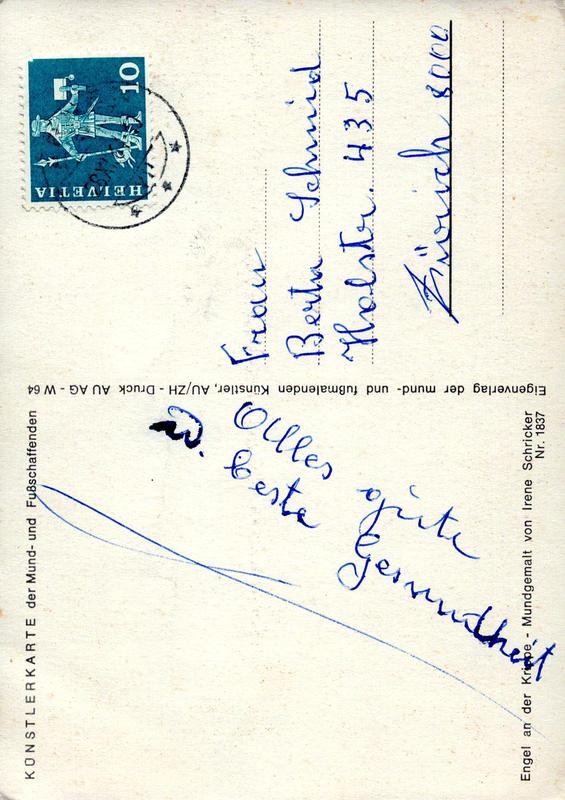 KÜNSTLERKARTE der Mund- und Fußschaffenden
Alles gute
u. beste
Gesundheit
Engel an der Krippe - Mundgemalt von Irene Schricker
Nr. 1837
Eigenverlag der mund- und fußmalenden Künstler, AU/ZH - Druck AU AG - W 64
HELVETIA
10
Frau
Berta Schmid
Hohlstr. 435
Zürich 8000